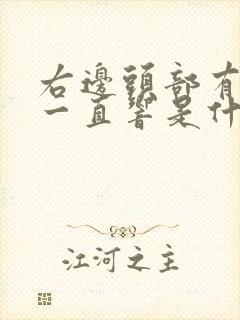 右邊頭部有
一直響是什
江河之主